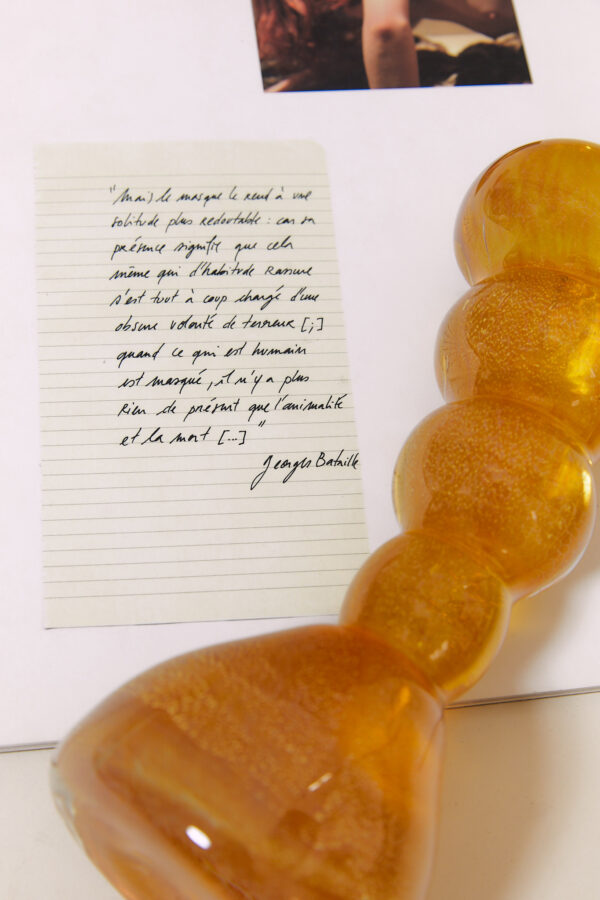 "Mais le masque le rend à une
solitude plus redoutable : car sa
présence signifie que cela
même qui d'habitude rassure
s'est tout à coup chargé d'une
obscure volonté de terreur [;]
quand ce qui est humain
est masqué, il n'y a plus
rien de présent que l'animalité
et la mort [...]"
Georges Bataille